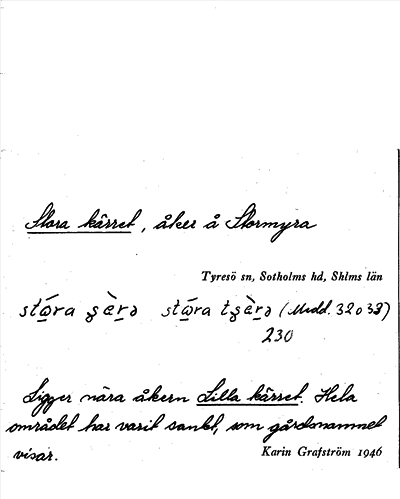 Stora kärret, åker å Stormyra
Tyresö sn, Sotholms hd, Shlms län
stω̄́ra ʂæ̀rə stω̄́ra tʂæ̀rə (Medd. 32 o 33)
230
Ligger nära åkern Lilla kärret. Hela
området har varit sankt, som gårdsnamnet
visar.
Karin Grafström 1946